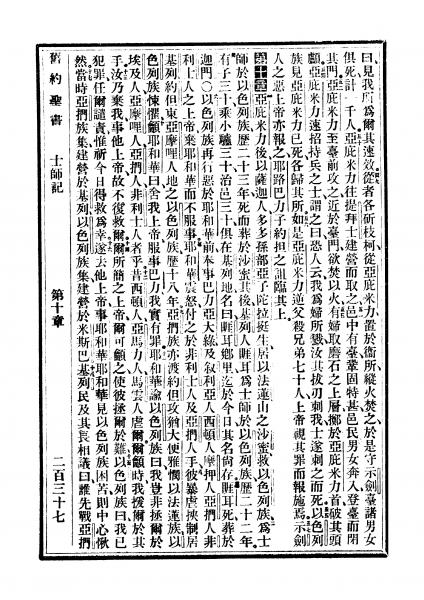 曰見我所爲爾其速效從者各斫枝柯從亞庇米力置於衞所縱火焚之於是守示劍臺諸男女
俱死計一千人亞庇米力往提拜士建營而取之邑中有臺鞏固特甚邑民男女奔入登臺而閉
其門亞庇米力至臺前攻之近於臺門欲焚以火有婦取磨石之上層擲於亞庇米力首破其頭
顱亞庇米力速招持兵之士謂之曰恐人云我爲婦所戮汝其拔刃刺我士遂刺之而死以色列
族見亞庇米力已死各歸其所如是亞庇米力逆父殺兄弟七十人上帝視其罪而報施焉示劍
人之惡上帝亦報之耶路巴力子約担之詛臨其上
第十章亞庇米力後以薩迦人多多孫部亞子陀拉挺生居以法蓮山之沙蜜救以色列族爲士
師於以色列族歷二十三年死而葬於沙蜜其後基列人睚耳爲士師於以色列族歷二十二年
有子三十乘小驢三十治邑三十俱在基列地名曰睚耳鄉里迄於今日其名尙存睚耳死葬於
迦門○以色列族再行惡於耶和華前奉事巴力亞大綠及叙利亞人西頓人摩押人亞捫人非
利士人之上帝棄耶和華而不服事耶和華震怒付之於非利士人及亞捫人手彼暴虐挾制居
基列約但東亞摩哩人地之以色列族歷十八年亞捫族亦渡約但攻猶大便雅憫以法蓮族以
色列族悚懼籲耶和華曰舍我上帝服事巴力我實有罪耶和華諭以色列族曰我豈非拯爾於
埃及人亞摩哩人亞捫人非利士人者乎昔西頓人亞馬力人馬雲人虐爾爾籲時我援爾於其
手汝乃棄我事他上帝故不復救爾爾所簡之上帝爾可籲之使彼拯爾於難以色列族曰我已
犯罪任爾譴責惟祈今日得救爲幸遂去他上帝事耶和華耶和華見以色列族困苦則中心惻
然當時亞捫族集建營於基列以色列族集建營於米斯巴基列民及其長相議曰誰先戰亞捫
舊約聖書 士師記 第十章 二百三十七